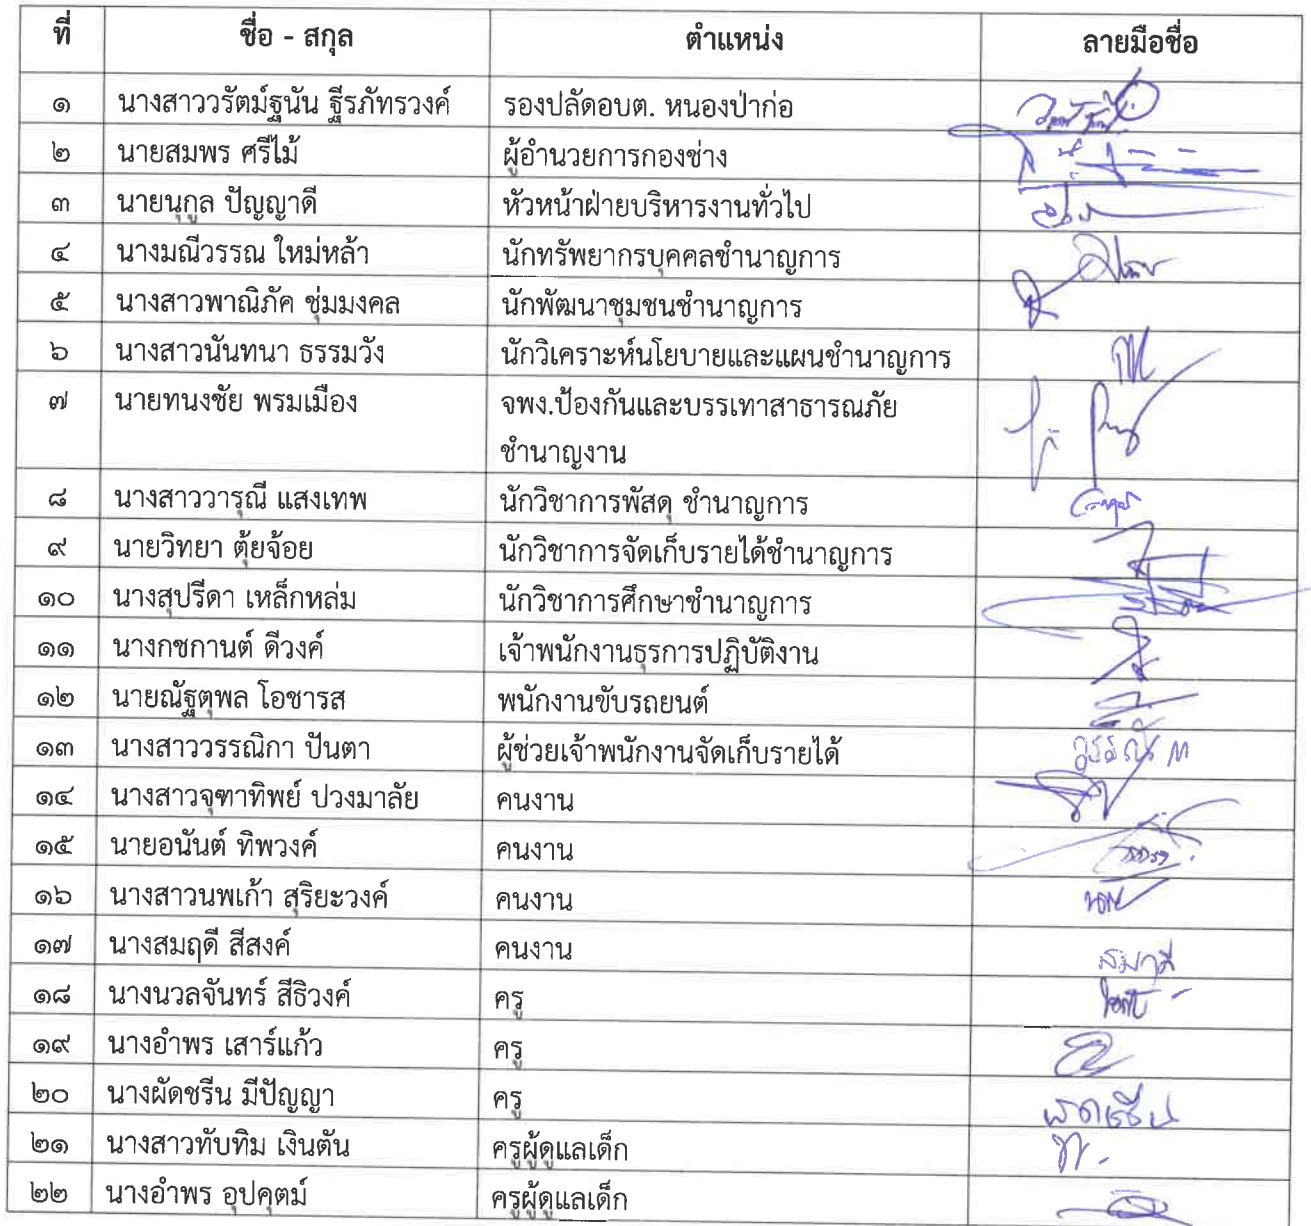 ที่ ชื่อ - สกุล ตำแหน่ง ลายมือชื่อ
๑ นางสาววรัตม์ฐนัน ฐีรภัทรวงค์ รองปลัดอบต. หนองป่าก่อ
๒ นายสมพร ศรีไม้ ผู้อำนวยการกองช่าง
๓ นายนุกูล ปัญญาดี หัวหน้าฝ่ายบริหารงานทั่วไป
๔ นางมณีวรรณ ใหม่หล้า นักทรัพยากรบุคคลชำนาญการ
๕ นางสาวพาณิภัค ชุ่มมงคล นักพัฒนาชุมชนชำนาญการ
๖ นางสาวนันทนา ธรรมวัง นักวิเคราะห์นโยบายและแผนชำนาญการ
๗ นายทนงชัย พรมเมือง จพง.ป้องกันและบรรเทาสาธารณภัย
ชำนาญงาน
๘ นางสาววารุณี แสงเทพ นักวิชาการพัสดุ ชำนาญการ
๙ นายวิทยา ตุ้ยจ้อย นักวิชาการจัดเก็บรายได้ชำนาญการ
๑๐ นางสุปรีดา เหล็กหล่ม นักวิชาการศึกษาชำนาญการ
๑๑ นางกชกานต์ ดีวงค์ เจ้าพนักงานธุรการปฏิบัติงาน
๑๒ นายณัฐตุพล โอชารส พนักงานขับรถยนต์
๑๓ นางสาววรรณิกา ปันตา ผู้ช่วยเจ้าพนักงานจัดเก็บรายได้
๑๔ นางสาวจุฑาทิพย์ ปวงมาลัย คนงาน
๑๕ นายอนันต์ ทิพวงค์ คนงาน
๑๖ นางสาวนพเก้า สุริยะวงค์ คนงาน
๑๗ นางสมฤดี สีสงค์ คนงาน สมฤดี
๑๘ นางนวลจันทร์ สีธิวงค์ ครู
๑๙ นางอำพร เสาร์แก้ว ครู
๒๐ นางผัดชรีน มีปัญญา ครู
๒๑ นางสาวทับทิม เงินตัน ครูผู้ดูแลเด็ก
๒๒ นางอำพร อุปคุตม์ ครูผู้ดูแลเด็ก